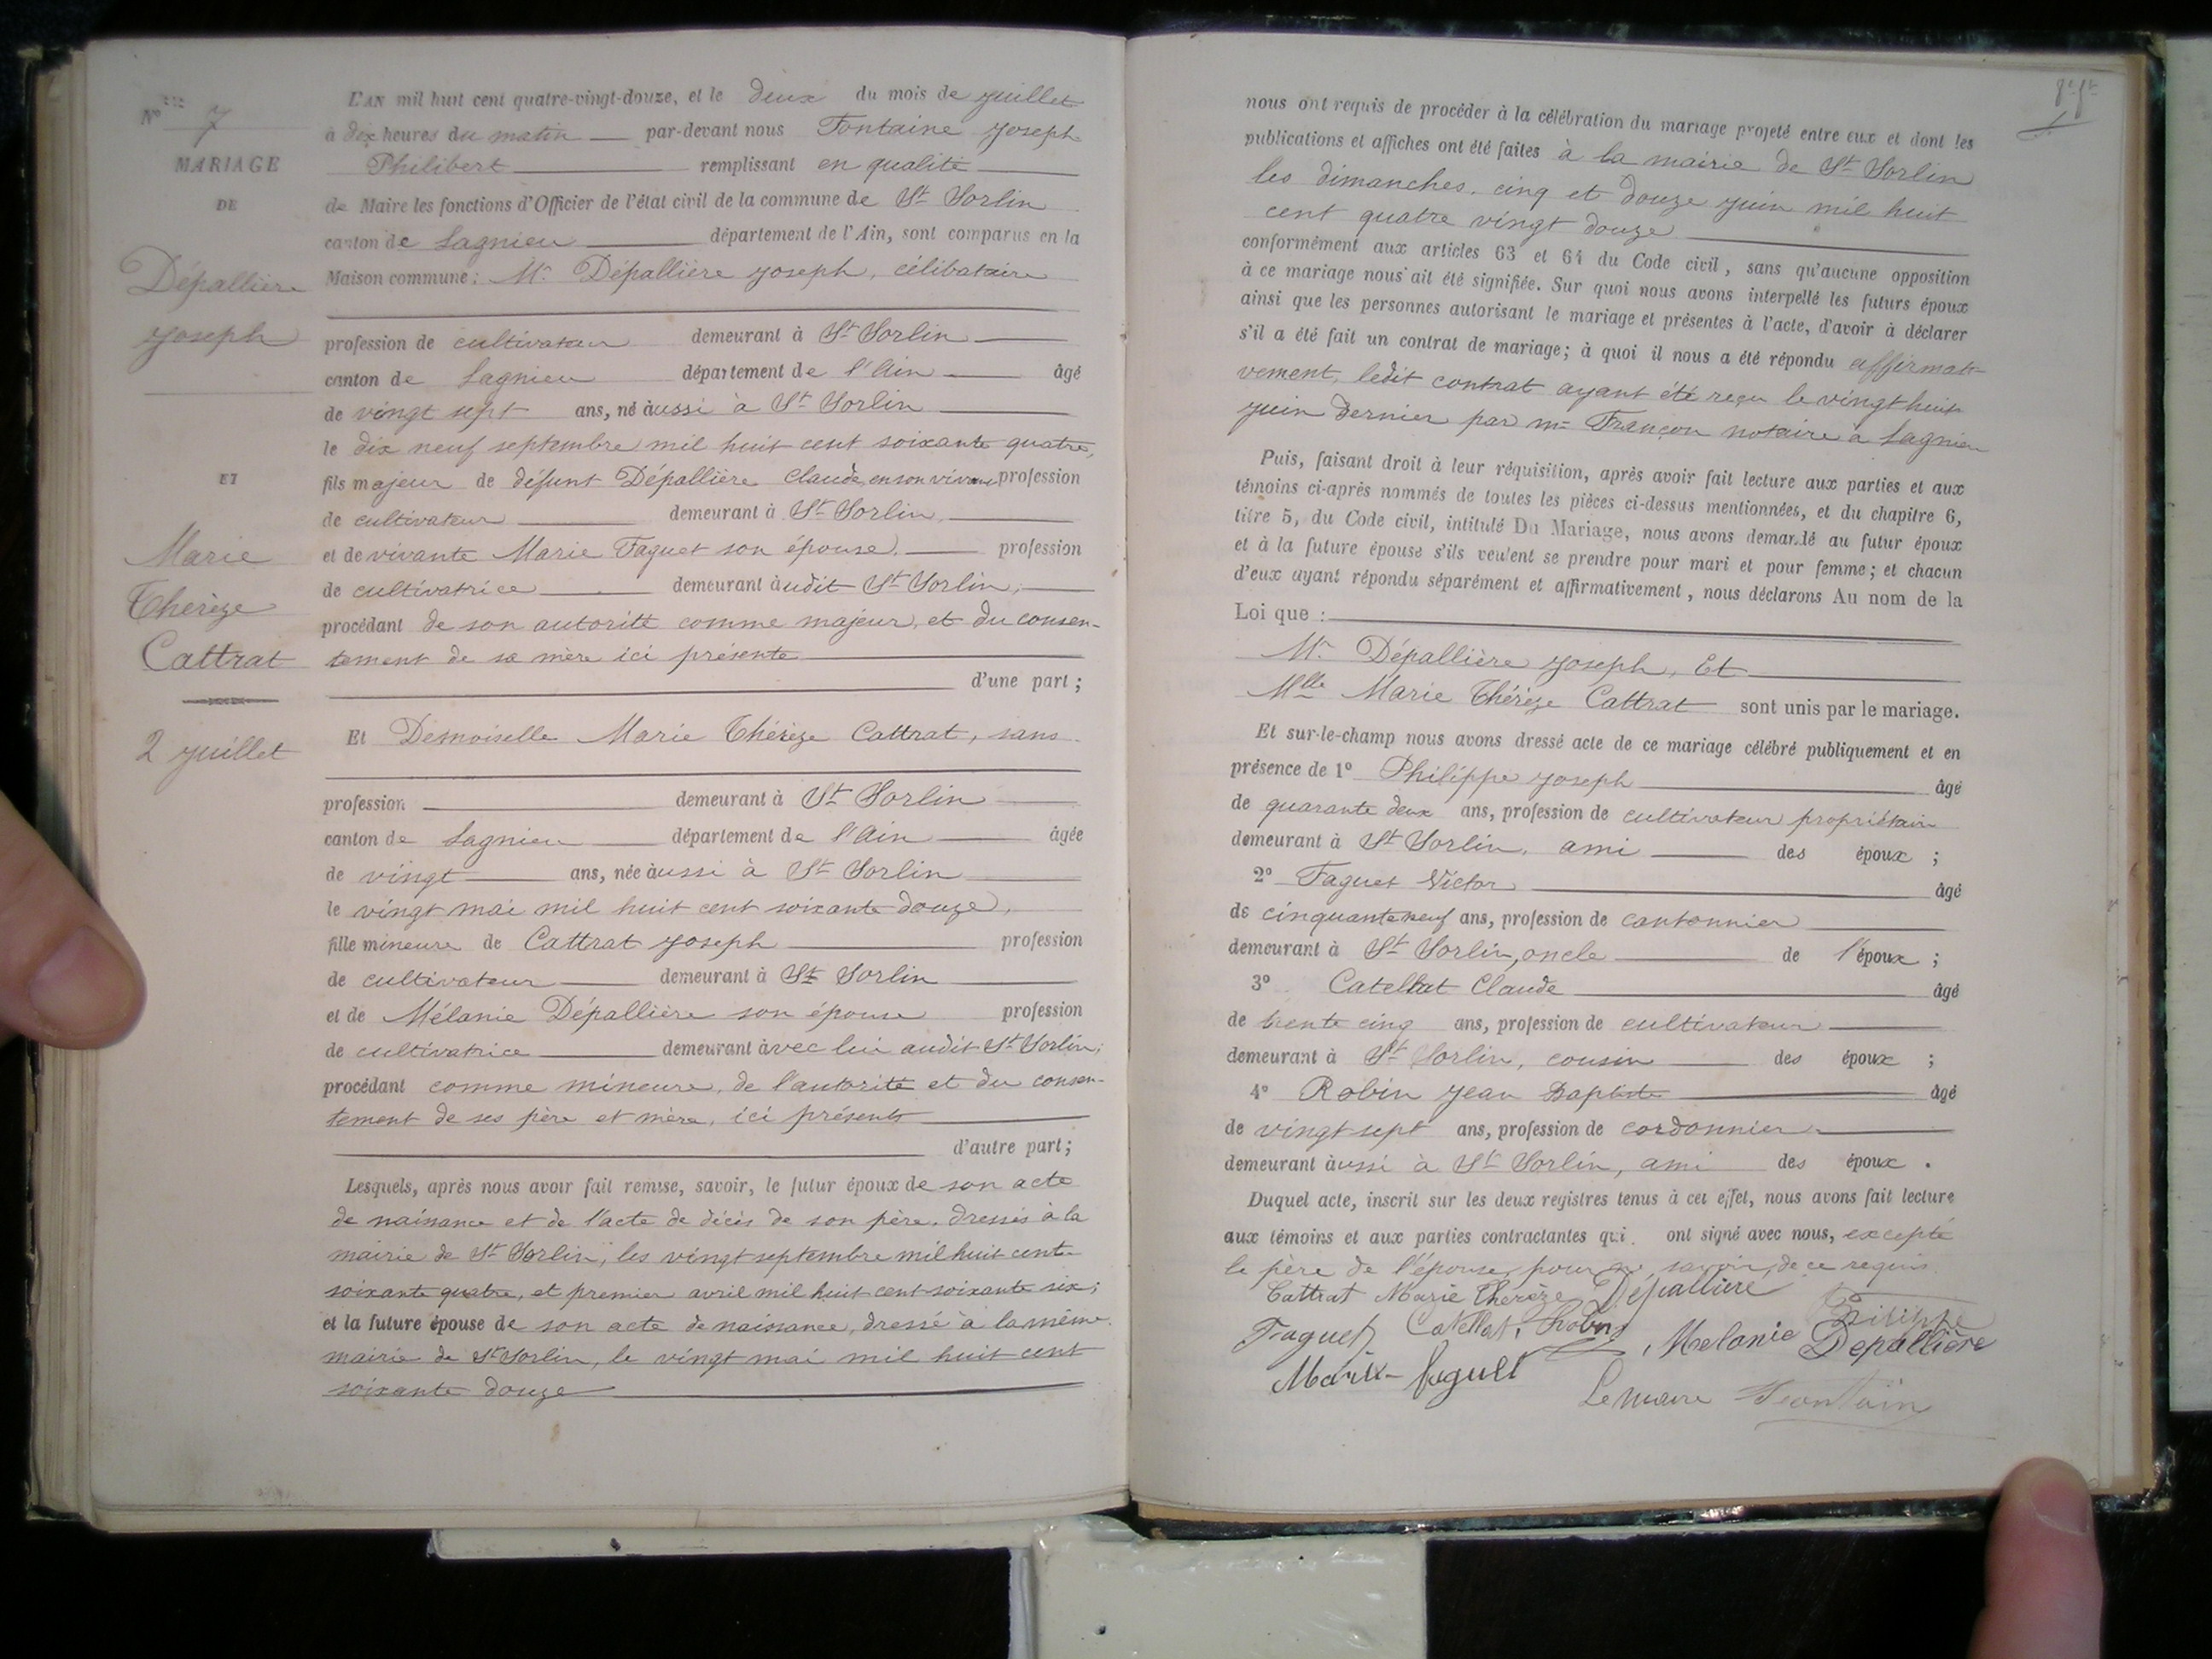 N° 7
MARIAGE
DE
Dépallière
Joseph
ET
Marie
Thérèze
Cattrat
2 Juillet
L'AN mil huit cent quatre-vingt-douze, et le deux du mois de Juillet
à dix heures du matin par-devant nous Fontaine Joseph
Philibert remplissant en qualité
de Maire les fonctions d'Officier de l'état civil de la commune de St Sorlin
canton de Lagnieu département de l'Ain, sont comparus en la
Maison commune : Mr Dépallière Joseph, célibataire
profession de cultivateur demeurant à St Sorlin
canton de Lagnieu département de l'Ain âgé
de vingt sept ans, né aussi à St Sorlin
le dix neuf septembre mil huit cent soixante quatre,
fils majeur de défunt Dépallière Claude, en son vivant profession
de cultivateur demeurant à St Sorlin,
et de vivante Marie Faguet son épouse, profession
de cultivatrice demeurant audit St Sorlin,
procédant de son autorité comme majeur, et du consen-
tement de sa mère ici présente
d'une part ;
Et Demoiselle Marie Thérèze Cattrat, sans
profession demeurant à St Sorlin
canton de Lagnieu département de l'Ain âgée
de vingt ans, née aussi à St Sorlin
le vingt mai mil huit cent soixante douze,
fille mineure de Cattrat Joseph profession
de cultivateur demeurant à St Sorlin
et de Mélanie Dépallière son épouse profession
de cultivatrice demeurant avec lui audit St Sorlin;
procédant comme mineure, de l'autorité et du consen-
tement de ses père et mère, ici présents
d'autre part ;
Lesquels, après nous avoir fait remise, savoir, le futur époux de son acte
de naissance et de l'acte de décès de son père, dressés à la
mairie de St Sorlin, les vingt septembre mil huit cent
soixante quatre, et premier avril mil huit cent soixante six;
et la future épouse de son acte de naissance, dressé à la même
mairie de St Sorlin, le vingt mai mil huit cent
soixante douze
nous ont requis de procéder à la célébration du mariage projeté entre eux et dont les
publications et affiches ont été faites à la mairie de St Sorlin
les dimanches, cinq et douze juin mil huit
cent quatre vingt douze
conformément aux articles 63 et 64 du Code civil, sans qu'aucune opposition
à ce mariage nous ait été signifiée. Sur quoi nous avons interpellé les futurs époux
ainsi que les personnes autorisant le mariage et présentes à l'acte, d'avoir à déclarer
s'il a été fait un contrat de mariage ; à quoi il nous a été répondu affirmati-
vement, ledit contrat ayant été reçu le vingt huit
juin dernier par me Françon notaire à Lagnieu
Puis, faisant droit à leur réquisition, après avoir fait lecture aux parties et aux
témoins ci-après nommés de toutes les pièces ci-dessus mentionnées, et du chapitre 6,
titre 5, du Code civil, intitulé Du Mariage, nous avons demandé au futur époux
et à la future épouse s'ils veulent se prendre pour mari et pour femme ; et chacun
d'eux ayant répondu séparément et affirmativement, nous déclarons Au nom de la
Loi que :
Mr Dépallière Joseph, Et
Mlle Marie Thérèze Cattrat sont unis par le mariage.
Et sur-le-champ nous avons dressé acte de ce mariage célébré publiquement et en
présence de 1° Philippe Joseph âgé
de quarante deux ans, profession de cultivateur propriétaire
demeurant à St Sorlin, ami des époux ;
2° Faguet Victor âgé
de cinquante neuf ans, profession de cantonnier
demeurant à St Sorlin, oncle de l'époux ;
3° Catellat Claude âgé
de trente cinq ans, profession de cultivateur
demeurant à St Sorlin, cousin des époux ;
4° Robin Jean Baptiste âgé
de vingt sept ans, profession de cordonnier
demeurant aussi à St Sorlin, ami des époux .
Duquel acte, inscrit sur les deux registres tenus à cet effet, nous avons fait lecture
aux témoins et aux parties contractantes qui ont signé avec nous, excepté
le père de l'épouse, pour ne savoir, de ce requis
Cattrat Marie Thérèze Dépallière
Philippe
Faguet Catellat, Robin, Mélanie Depallière
Marie Faguet
Le maire Fontaine